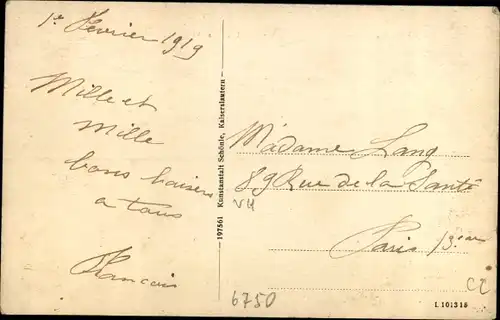 1er Fevrier 1919
Mille et
Mille
bons baisers
a tous
Francois
197561 Kunstanstalt Schönle, Kaiserslautern.
Madame Lang
89 Rue de la Santé
VH
Paris 13ème
6750
CZ
L 101315